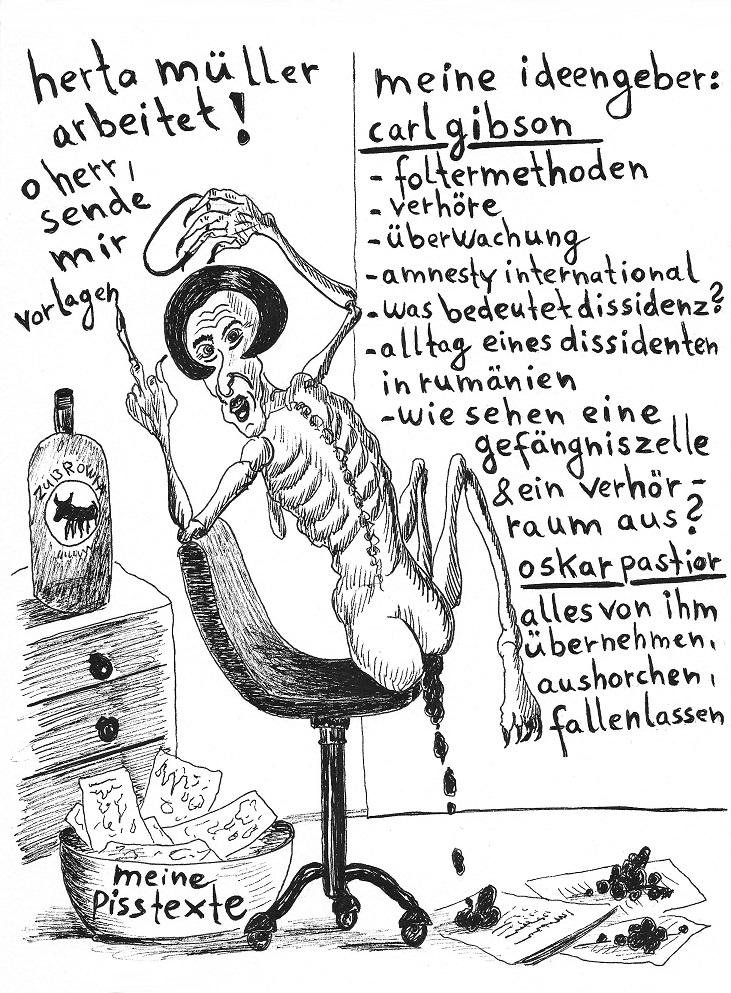 herta müller
arbeitet!
o herr,
sende
mir
vorlagen
meine ideengeber:
carl gibson
- foltermethoden
- verhöre
- überwachung
- amnesty international
- was bedeutet dissidenz?
- alltag eines dissidenten
in rumänien
- wie sehen eine
gefängniszelle
& ein verhör-
raum aus?
oskar pastior
alles von ihm
übernehmen,
aushorchen,
fallenlassen
ZUBROWKA
meine
pisstexte